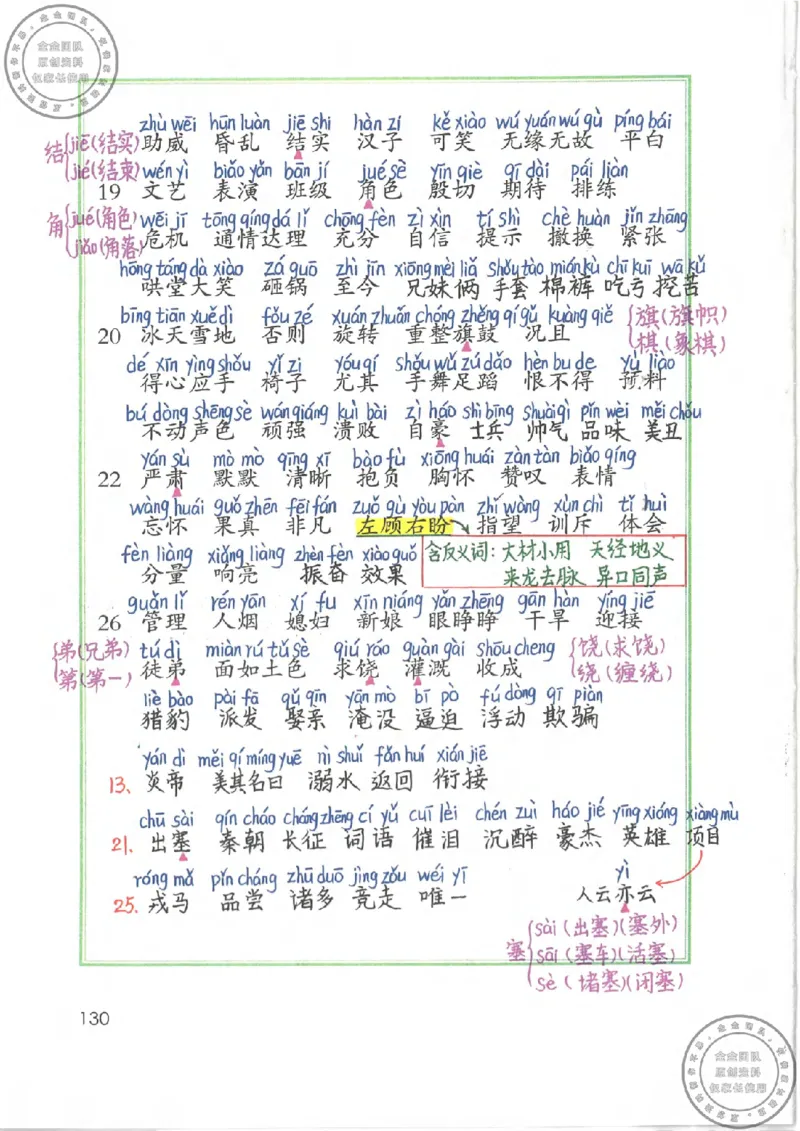 zhù wēi hūn luàn jiē shi hàn zí kě xiào wú yuán wú gù píng bái
结 jiē(结实) 助威 昏乱 结实 汉子 可笑 无缘无故 平白
jié(结束) wén yì biǎo yǎn bān jí jué sè yīn qiè qī dài pái liàn
19 文艺 表演 班级 角色 殷切 期待 排练
角 jué(角色) wēi jī tōng qíng dá lǐ chōng fèn zì xìn tí shì chè huàn jǐn zhāng
jiǎo(角落) 危机 通情达理 充分 自信 提示 撤换 紧张
hōng táng dà xiào zá guō zhì jīn xiōng mèi liǎ shǒu tào mián kù chī kuī wā kǔ
哄堂大笑 砸锅 至今 兄妹俩 手套 棉裤 吃亏 挖苦
bīng tiān xuě dì fǒu zé xuán zhuǎn chóng zhěng qí gǔ kuàng qiě 旗(旗帜)
20 冰天雪地 否则 旋转 重整旗鼓 况且 棋(象棋)
dé xīn yìng shǒu yǐ zi yóu qí shǒu wǔ zú dǎo hèn bu de yù liào
得心应手 椅子 尤其 手舞足蹈 恨不得 预料
bú dòng shēng sè wán qiáng kuì bài zì háo shì bīng shuài qì pǐn wèi měi chǒu
不动声色 顽强 溃败 自豪 士兵 帅气 品味 美丑
yán sù mò mò qīng xī bào fù xiōng huái zàn tàn biǎo qíng
22 严肃 默默 清晰 抱负 胸怀 赞叹 表情
wàng huái guǒ zhēn fēi fán zuǒ gù yòu pàn zhǐ wàng xùn chì tǐ huì
忘怀 果真 非凡 左顾右盼 指望 训斥 体会
fèn liàng xiǎng liàng zhèn fèn xiào guǒ 含反义词: 大材小用 天经地义
分量 响亮 振奋 效果 来龙去脉 异口同声
guǎn lǐ rén yān xí fu xīn niáng yǎn zhēng gān hàn yíng jiē
26 管理 人烟 媳妇 新娘 眼睁睁 干旱 迎接
弟(兄弟) tú dì miàn rú tǔ sè qiú ráo guàn gài shōu cheng 饶(求饶)
第(第一) 徒弟 面如土色 求饶 灌溉 收成 绕(缠绕)
liè bào pài fā qǔ qīn yān mò bī pò fú dòng qī piàn
猎豹 派发 娶亲 淹没 逼迫 浮动 欺骗
yán dì měi qí míng yuē nì shuǐ fǎn huí xián jiē
13、炎帝 美其名曰 溺水 返回 衔接
chū sài qín cháo cháng zhēng cí yǔ cuī lèi chén zuì háo jié yīng xióng xiàng mù
21. 出塞 秦朝 长征 词语 催泪 沉醉 豪杰 英雄 项目
róng mǎ pǐn cháng zhū duō jìng zǒu wéi yī yì
25. 戎马 品尝 诸多 竞走 唯一 人云亦云
sài(出塞)(塞外)
塞 sāi(塞车)(活塞)
sè(堵塞)(闭塞)
130